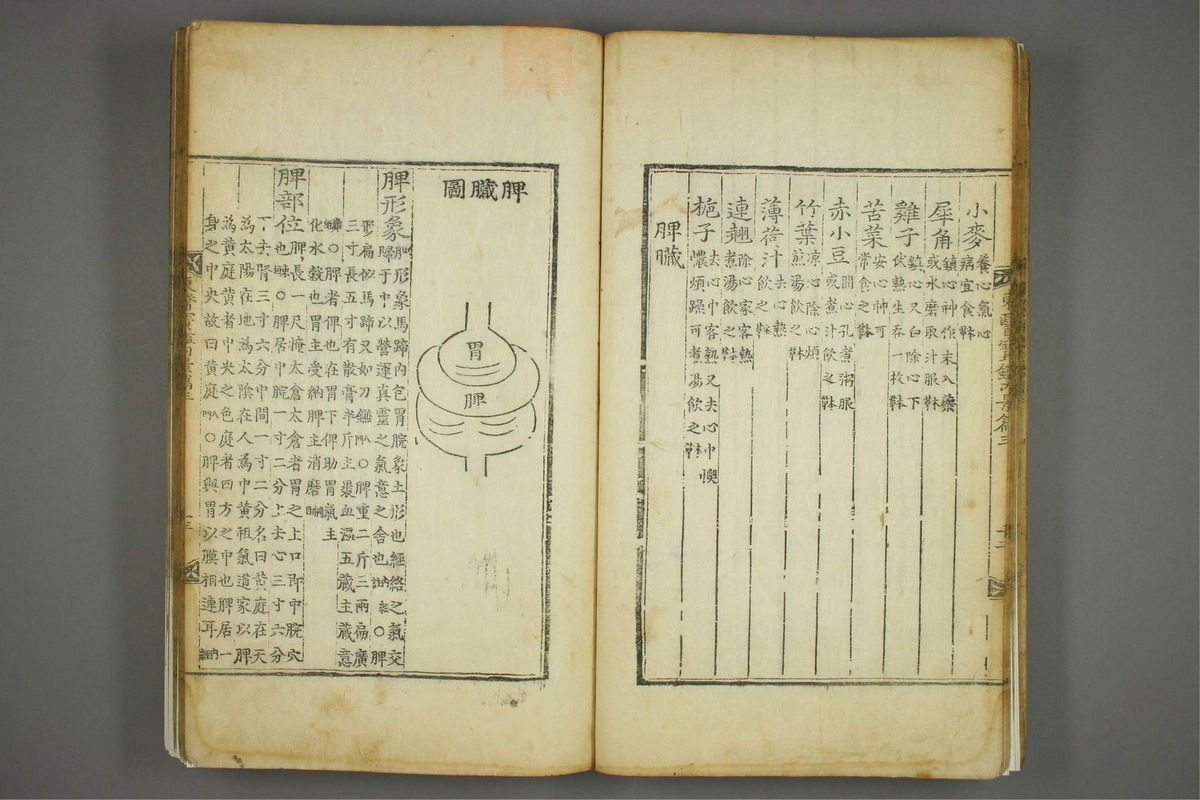 小麥 養心氣心
病宜食本草
犀角 鎭心神作末入藥
或水磨取汁服本草
雞子 鎭心又白除心下
伏熱生吞一枚本草
苦菜 安心神可
常食之本草
赤小豆 開心孔煮粥服
或煮汁飮之本草
竹葉 凉心除心煩
煎湯飮之本草
薄荷汁 去心熱
飮之本草
連翹 除心家客熱
煮湯飮之本草
梔子 去心中客熱又去心中懊
憹煩躁可煮湯飮之本草
脾臟
東醫寶鑑內景篇三
脾臟圖
胃
脾
脾形象 脾形象馬蹄內包胃脘象土形也經絡之氣交
歸于中以營運眞靈之氣意之舍也 ○脾
形扁似馬蹄又如刀鎌 ○脾重二斤三兩扁廣
三寸長五寸有散膏半斤主裹血溫五藏主藏意
○脾者俾也在胃下俾助胃氣主
化水穀也胃主受納脾主消磨
脾部位 脾長一尺掩太倉太倉者胃之上口卽中脘穴
也 ○脾居中脘一寸二分上去心三寸六分
下去腎三寸六分中間一寸二分名曰黃庭在天
爲太陽在地爲太陰在人爲中黃祖氣道家以脾
爲黃庭黃者中央之色庭者四方之中也脾居一
身之中央故曰黃庭 ○脾與胃以膜相連耳